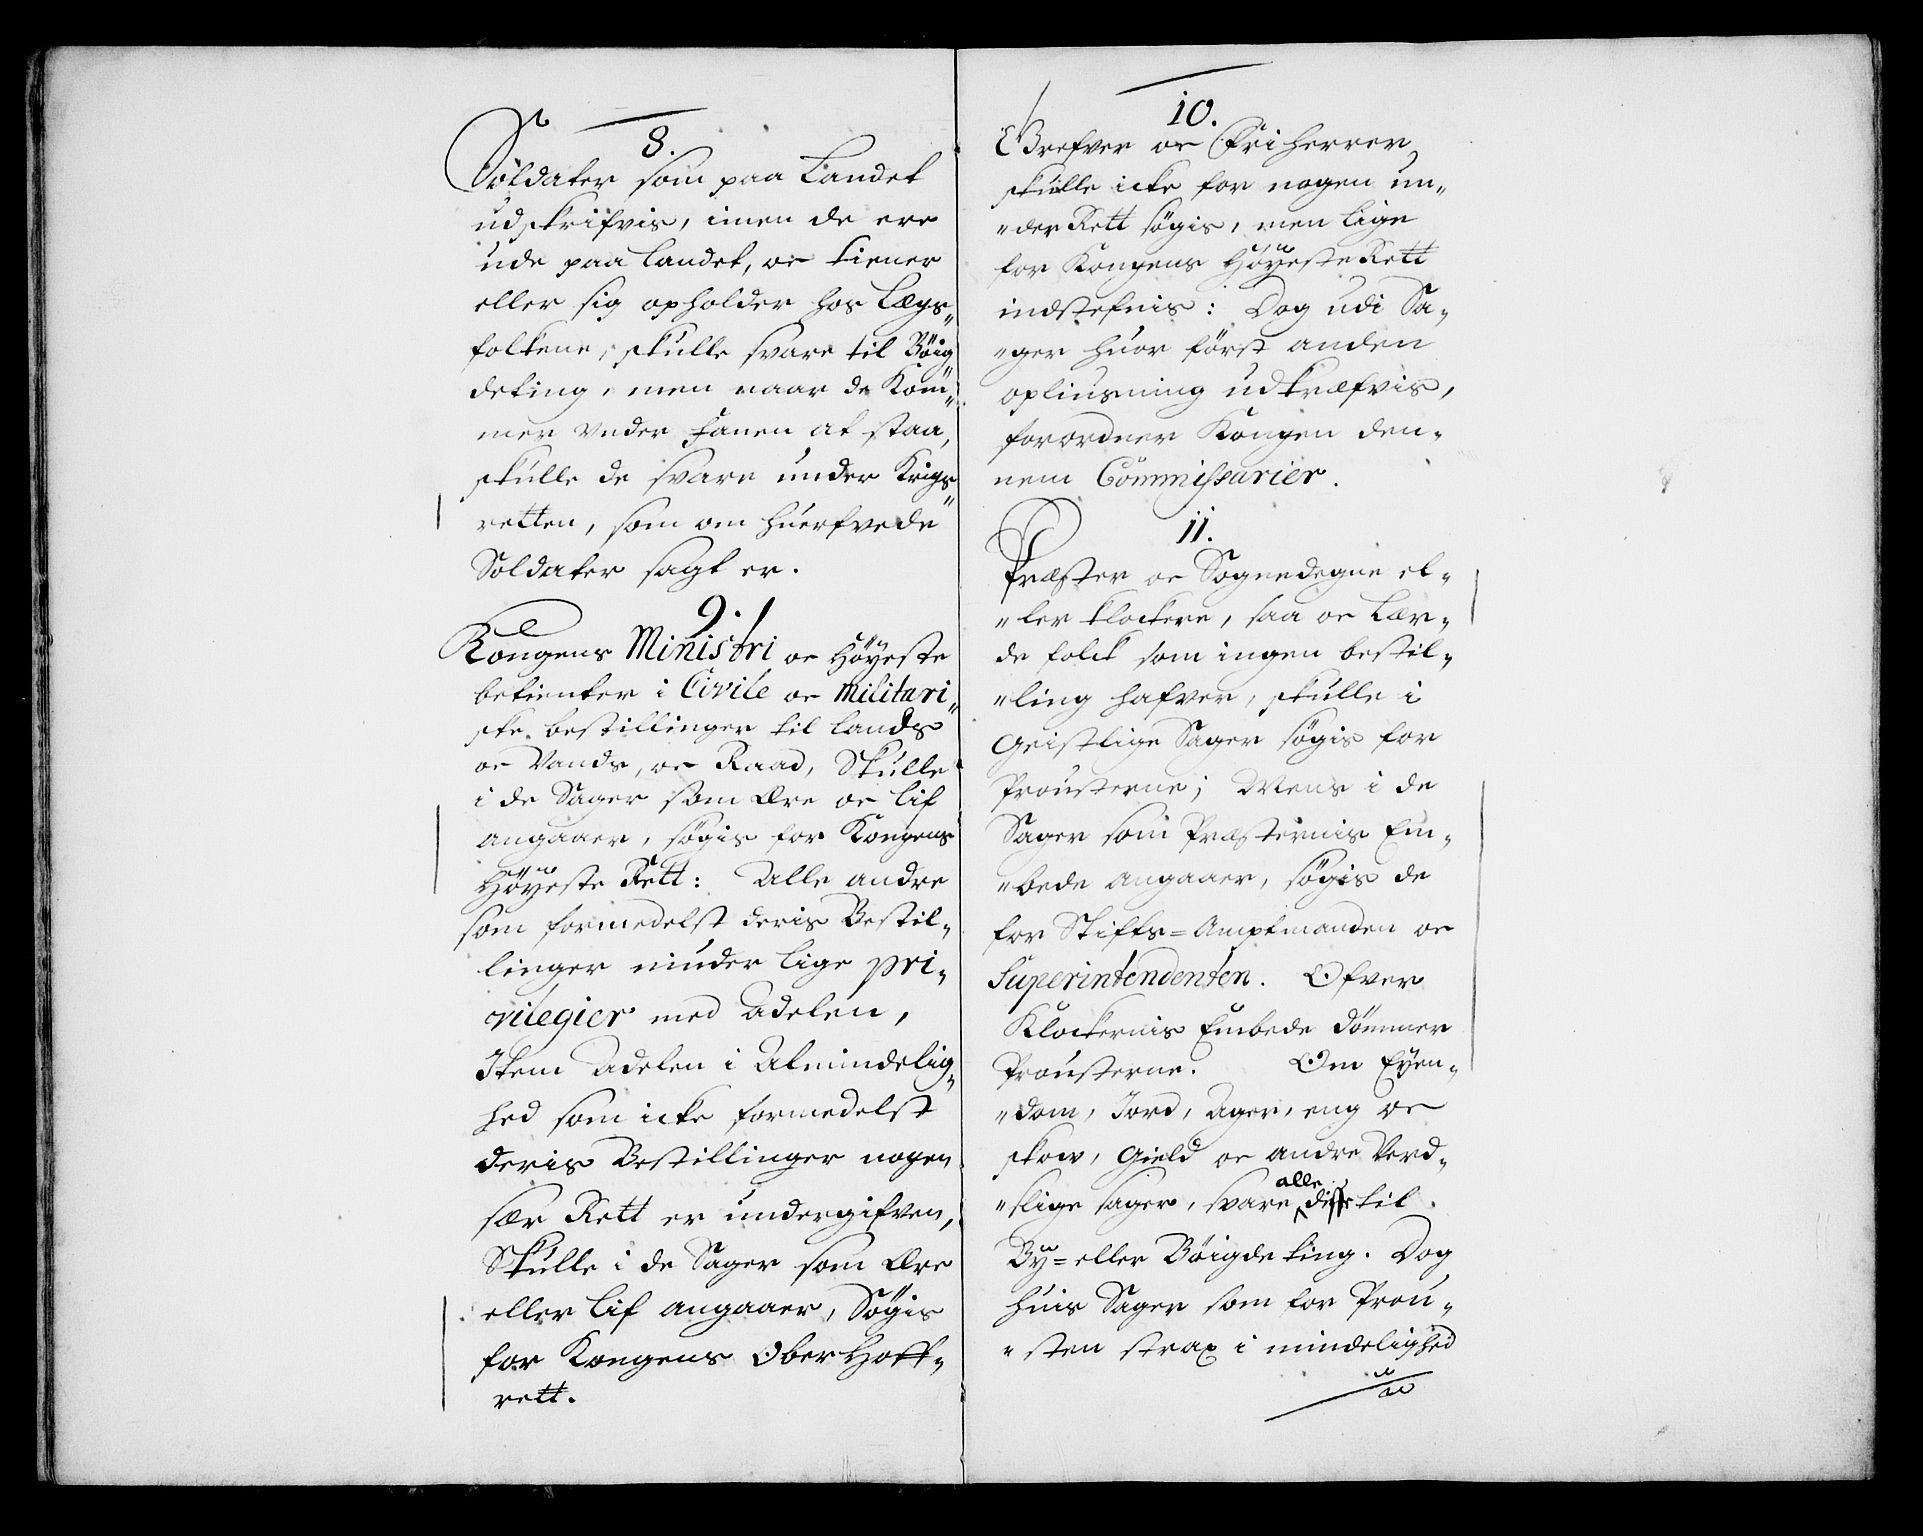 8.
Soldater som paa Landet
udskrifvis, imen de ere
ude paa landet, oc tiener
eller sig opholder hos Lægs„
folkene, skulle svare til Böig„
deting, men naar de Kom„
mer under fanen at staa,
skulle de svare under Krigs„
retten, som om huerfvede
Soldater sagt er.
9.
Kongens Ministri oc Höyeste
betienter i Civile oc Militari„
ske bestillinger til lands
oc Vands, oc Raad, Skulle
i de Sager som Ære oc lif
angaaer, søgis for Kongens
Höyeste Rett: Alle andre
som formedelst deris Bestil„
linger niuder lige pri„
vilegier med Adelen,
Item Adelen i Almindelig„
hed som icke formedelst
deris Bestillinger nogen
sær Rett er undergifven,
Skulle i de Sager som Ære
eller lif angaaer, Søgis
for Kongens OberHoff„
rett.
10.
Grefver oc Friherrer
skulle icke for nogen un„
„der Rett søgis, men lige
for Kongens Höyeste Rett
indstefnis: Dog udi Sa„
„ger huor först anden
opliusning udkræfvis,
forordner Kongen den„
nem Commissarier.
11.
Præster oc Sognedegne el„
„ler klockere, saa oc Lær„
de folck som ingen bestil„
„ling hafver, skulle i
Geistlige Sager søgis for
Prousterne; Mens i de
Sager som Præsternis Em„
„bede angaaer, søgis de
for Stifts=Amptmanden oc
Superintendenten. Ofver
Klockernis Embede dömmer
Prousterne. Om Eyen„
„dom, Jord, Ager, eng oc
skow, Gield oc andre Verd„
alle
„slige sager, svare disse til
By= eller Böigde ting. Dog
huis Sager som for Prou„
„sten strax i mindelighed